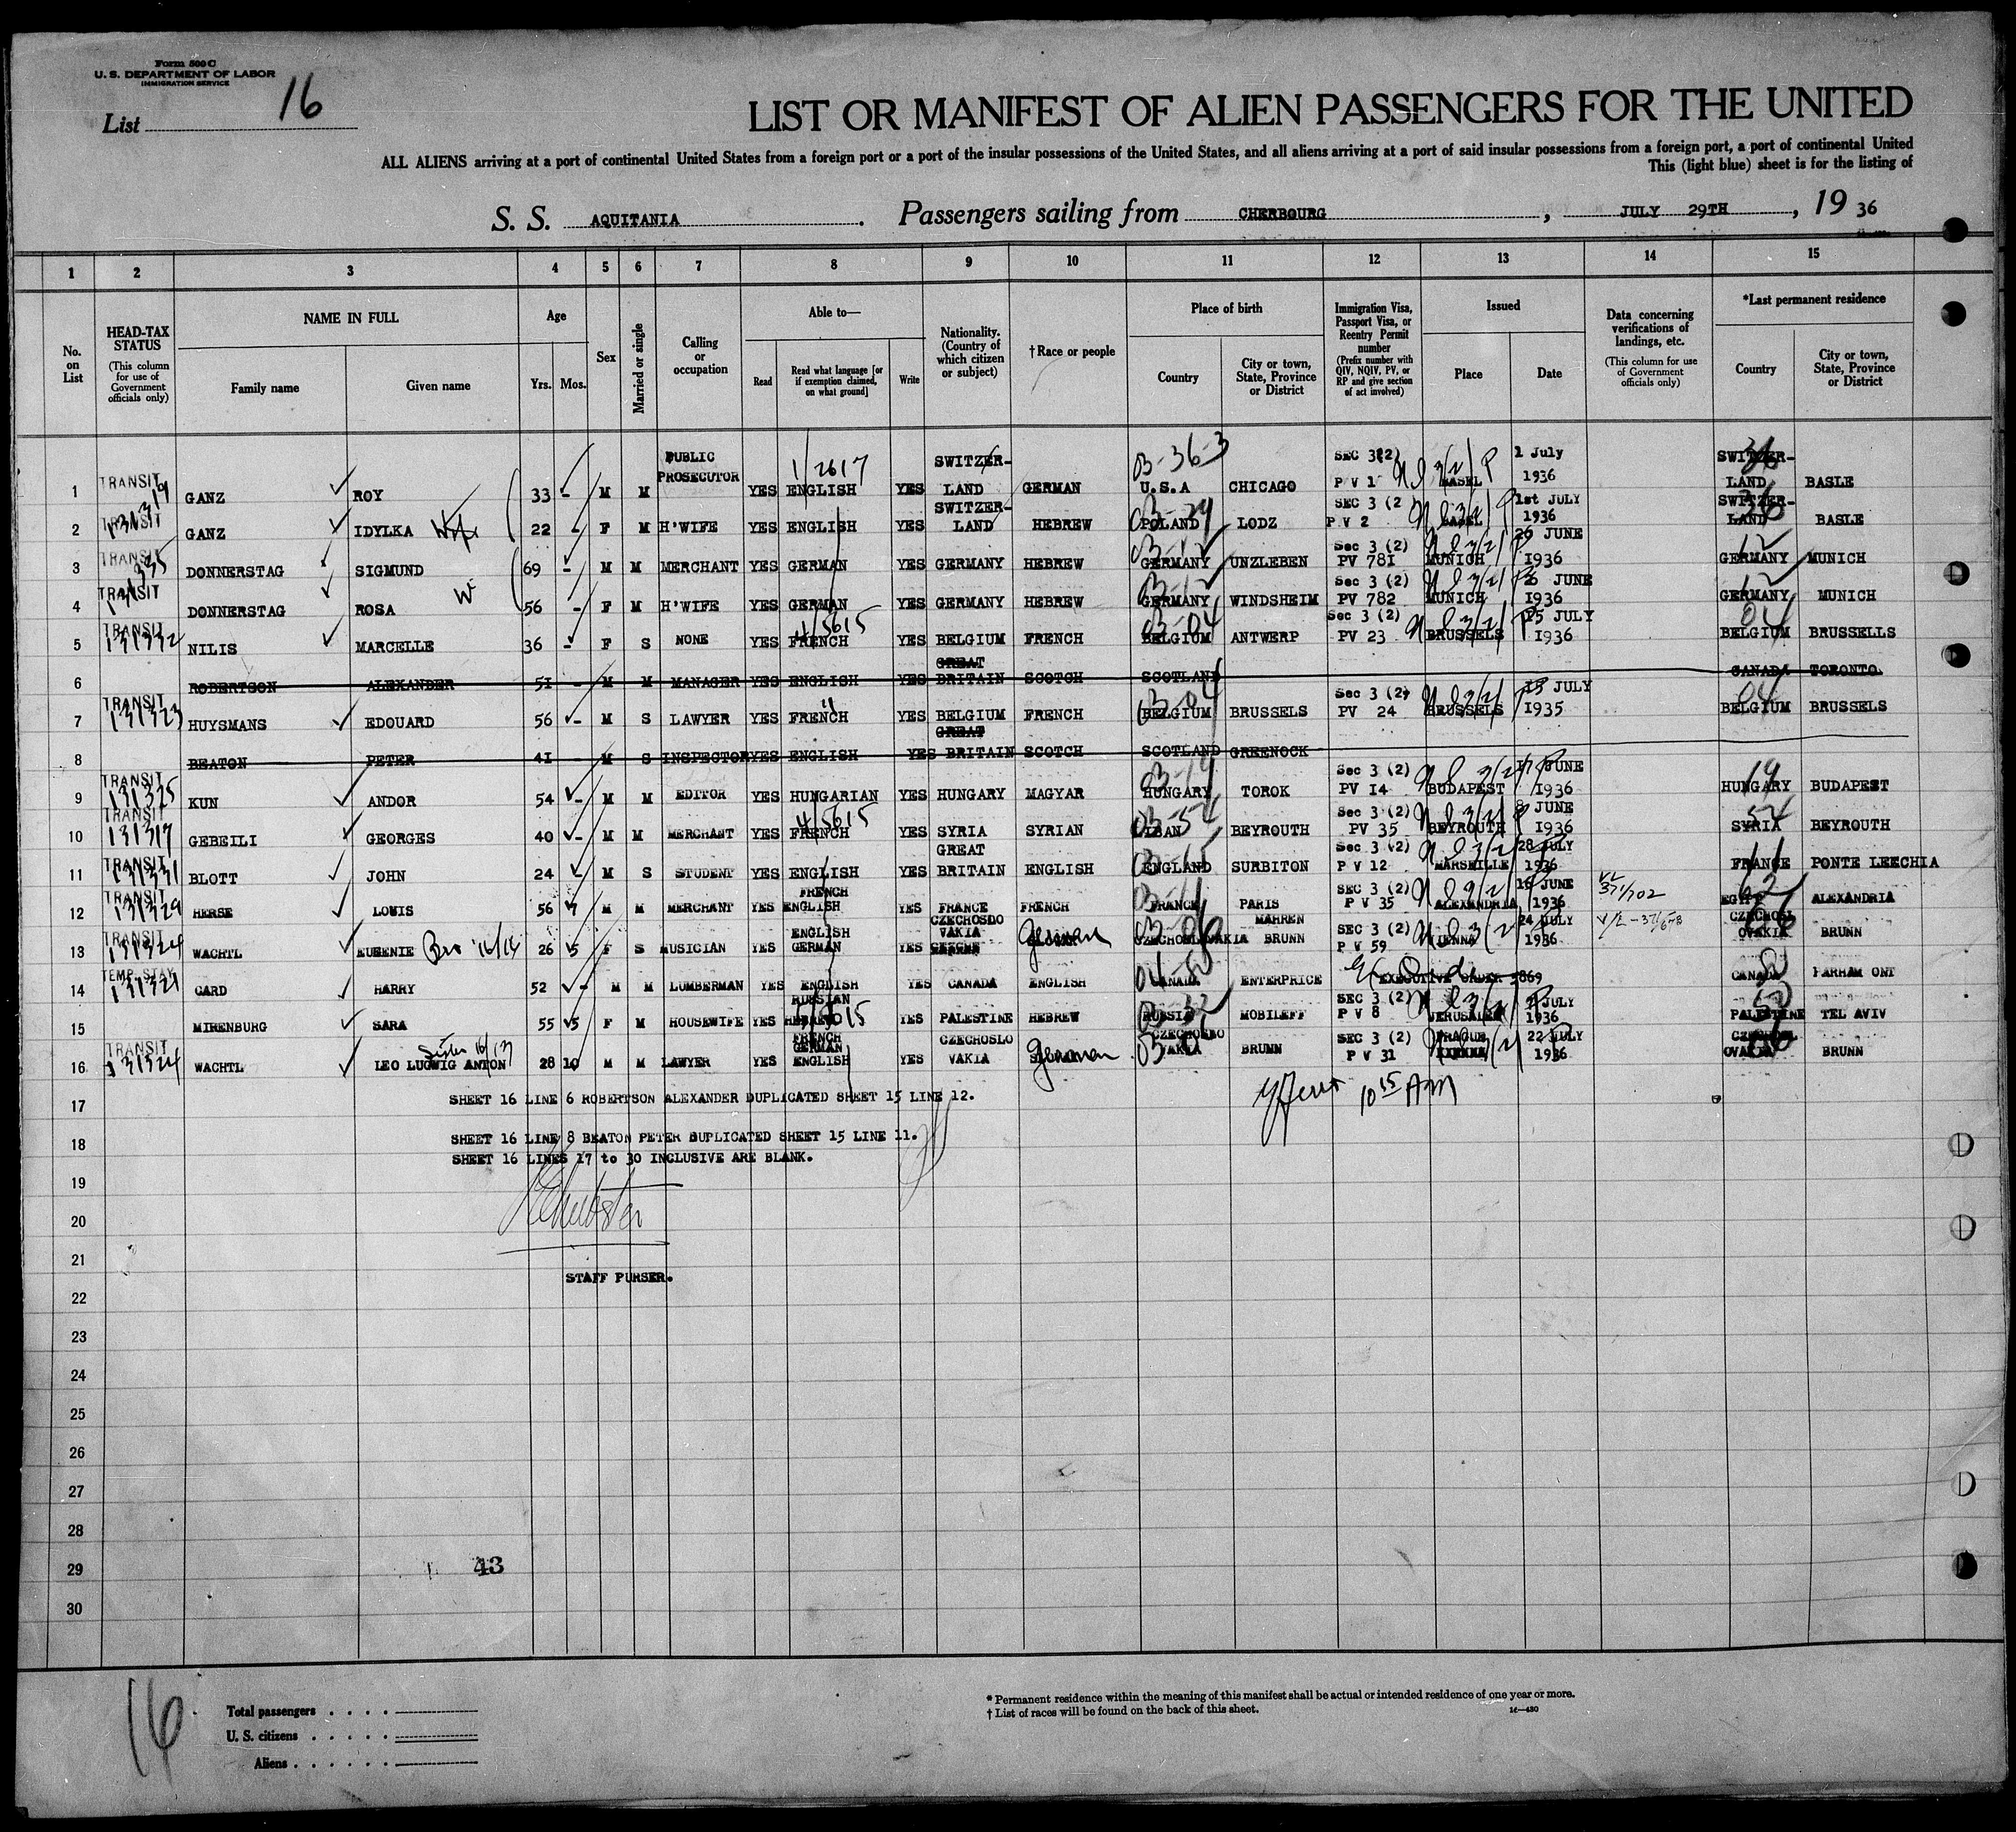 Form 500 C
U. S. DEPARTMENT OF LABOR
IMMIGRATION SERVICE
List 16
LIST OR MANIFEST OF ALIEN PASSENGERS FOR THE UNITED
ALL ALIENS arriving at a port of continental United States from a foreign port or a port of the insular possessions of the United States, and all aliens arriving at a port of said insular possessions from a foreign port, a port of continental United
This (light blue) sheet is for the listing of
S. S. AQUITANIA. Passengers sailing from CHERBOURG, JULY 29TH, 19 36
1 2 3 4 5 6 7 8 9 10 11 12 13 14 15
No. on List
HEAD-TAX STATUS (This column for use of Government officials only)
NAME IN FULL Family name Given name
Age Yrs. Mos.
Sex
Married or single
Calling or occupation
Able to— Read Read what language [or if exemption claimed, on what ground] Write
Nationality. (Country of which citizen or subject)
†Race or people
Place of birth Country City or town, State, Province or District
Immigration Visa, Passport Visa, or Reentry Permit number (Prefix number with QIV, NQIV, PV, or RP and give section of act involved)
Issued Place Date
Data concerning verifications of landings, etc. (This column for use of Government officials only)
*Last permanent residence Country City or town, State, Province or District
1 TRANSIT GANZ ROY 33 - M M PUBLIC PROSECUTOR YES ENGLISH YES SWITZER-LAND GERMAN 03-36-3 U.S.A CHICAGO SEC 3(2) P V 1 BASEL 1 July 1936 SWITZER-LAND BASLE
2 TRANSIT GANZ IDYLKA 22 - F M H'WIFE YES ENGLISH YES SWITZER-LAND HEBREW POLAND LODZ SEC 3 (2) P V 2 BASEL 1st JULY 1936 SWITZER-LAND BASLE
3 TRANSIT DONNERSTAG SIGMUND 69 - M M MERCHANT YES GERMAN YES GERMANY HEBREW GERMANY UNZLEBEN Sec 3 (2) PV 781 MUNICH 26 JUNE 1936 GERMANY MUNICH
4 TRANSIT DONNERSTAG ROSA W 56 - F M H'WIFE YES GERMAN YES GERMANY HEBREW GERMANY WINDSHEIM Sec 3 (2) PV 782 MUNICH 26 JUNE 1936 GERMANY MUNICH
5 TRANSIT 131332 NILIS MARCELLE 36 - F S NONE YES FRENCH YES BELGIUM FRENCH 03-04 BELGIUM ANTWERP Sec 3 (2) PV 23 BRUSSELS 15 JULY 1936 BELGIUM BRUSSELLS
6 ROBERTSON ALEXANDER 51 - M M MANAGER YES ENGLISH YES GREAT BRITAIN SCOTCH SCOTLAND CANADA TORONTO
7 TRANSIT 131323 HUYSMANS EDOUARD 56 - M S LAWYER YES FRENCH YES BELGIUM FRENCH 03-04 BELGIUM BRUSSELS Sec 3 (2) PV 24 BRUSSELS 15 JULY 1935 BELGIUM BRUSSELS
8 BEATON PETER 41 - M S INSPECTOR YES ENGLISH YES GREAT BRITAIN SCOTCH SCOTLAND GREENOCK
9 TRANSIT 131325 KUN ANDOR 54 - M M EDITOR YES HUNGARIAN YES HUNGARY MAGYAR 03-19 HUNGARY TOROK Sec 3 (2) PV 14 BUDAPEST JUNE 1936 HUNGARY BUDAPEST
10 TRANSIT 131317 GEBEILI GEORGES 40 - M M MERCHANT YES FRENCH YES SYRIA SYRIAN LIBAN BEYROUTH Sec 3 (2) PV 35 BEYROUTH 8 JUNE 1936 SYRIA BEYROUTH
11 TRANSIT 131331 BLOTT JOHN 24 - M S STUDENT YES ENGLISH YES GREAT BRITAIN ENGLISH ENGLAND SURBITON Sec 3 (2) P V 12 MARSEILLE 28 JULY 1936 FRANCE PONTE LEECHIA
12 TRANSIT 131329 HERSE LOUIS 56 7 M M MERCHANT YES FRENCH ENGLISH YES FRANCE FRENCH FRANCE PARIS SEC 3 (2) P V 35 ALEXANDRIA JUNE 1936 EGYPT ALEXANDRIA
13 TRANSIT 131324 WACHTL EUGENIE Bro 16/16 26 5 F S MUSICIAN YES ENGLISH GERMAN YES CZECHOSLO VAKIA German CZECHOSLOVAKIA MAHREN BRUNN SEC 3 (2) P V 59 VIENNA 24 JULY 1936 CZECHOSL OVAKIA BRUNN
14 TEMP. STAY 131321 CARD HARRY 52 - M M LUMBERMAN YES ENGLISH YES CANADA ENGLISH CANADA ENTERPRICE EXECUTIVE ORDER 5869 CANADA PARHAM ONT
15 MIRENBURG SARA 55 5 F M HOUSEWIFE YES RUSSIAN HEBREW YES PALESTINE HEBREW RUSSIA MOBILEFF SEC 3 (2) P V 8 JERUSALEM JULY 1936 PALESTINE TEL AVIV
16 TRANSIT 131324 WACHTL LEO LUDWIG ANTON Sister 16/13 28 10 M M LAWYER YES FRENCH GERMAN ENGLISH YES CZECHOSLO VAKIA German CZECHOSLO VAKIA BRUNN SEC 3 (2) P V 31 PRAGUE 22 JULY 1936 CZECHOSL OVAKIA BRUNN
17 SHEET 16 LINE 6 ROBERTSON ALEXANDER DUPLICATED SHEET 15 LINE 12. 10 15 AM
18 SHEET 16 LINE 8 BEATON PETER DUPLICATED SHEET 15 LINE 11.
SHEET 16 LINES 17 to 30 INCLUSIVE ARE BLANK.
19
20
21 STAFF PURSER.
22
23
24
25
26
27
28
29 43
30
16
Total passengers
U. S. citizens
Aliens
* Permanent residence within the meaning of this manifest shall be actual or intended residence of one year or more.
† List of races will be found on the back of this sheet.